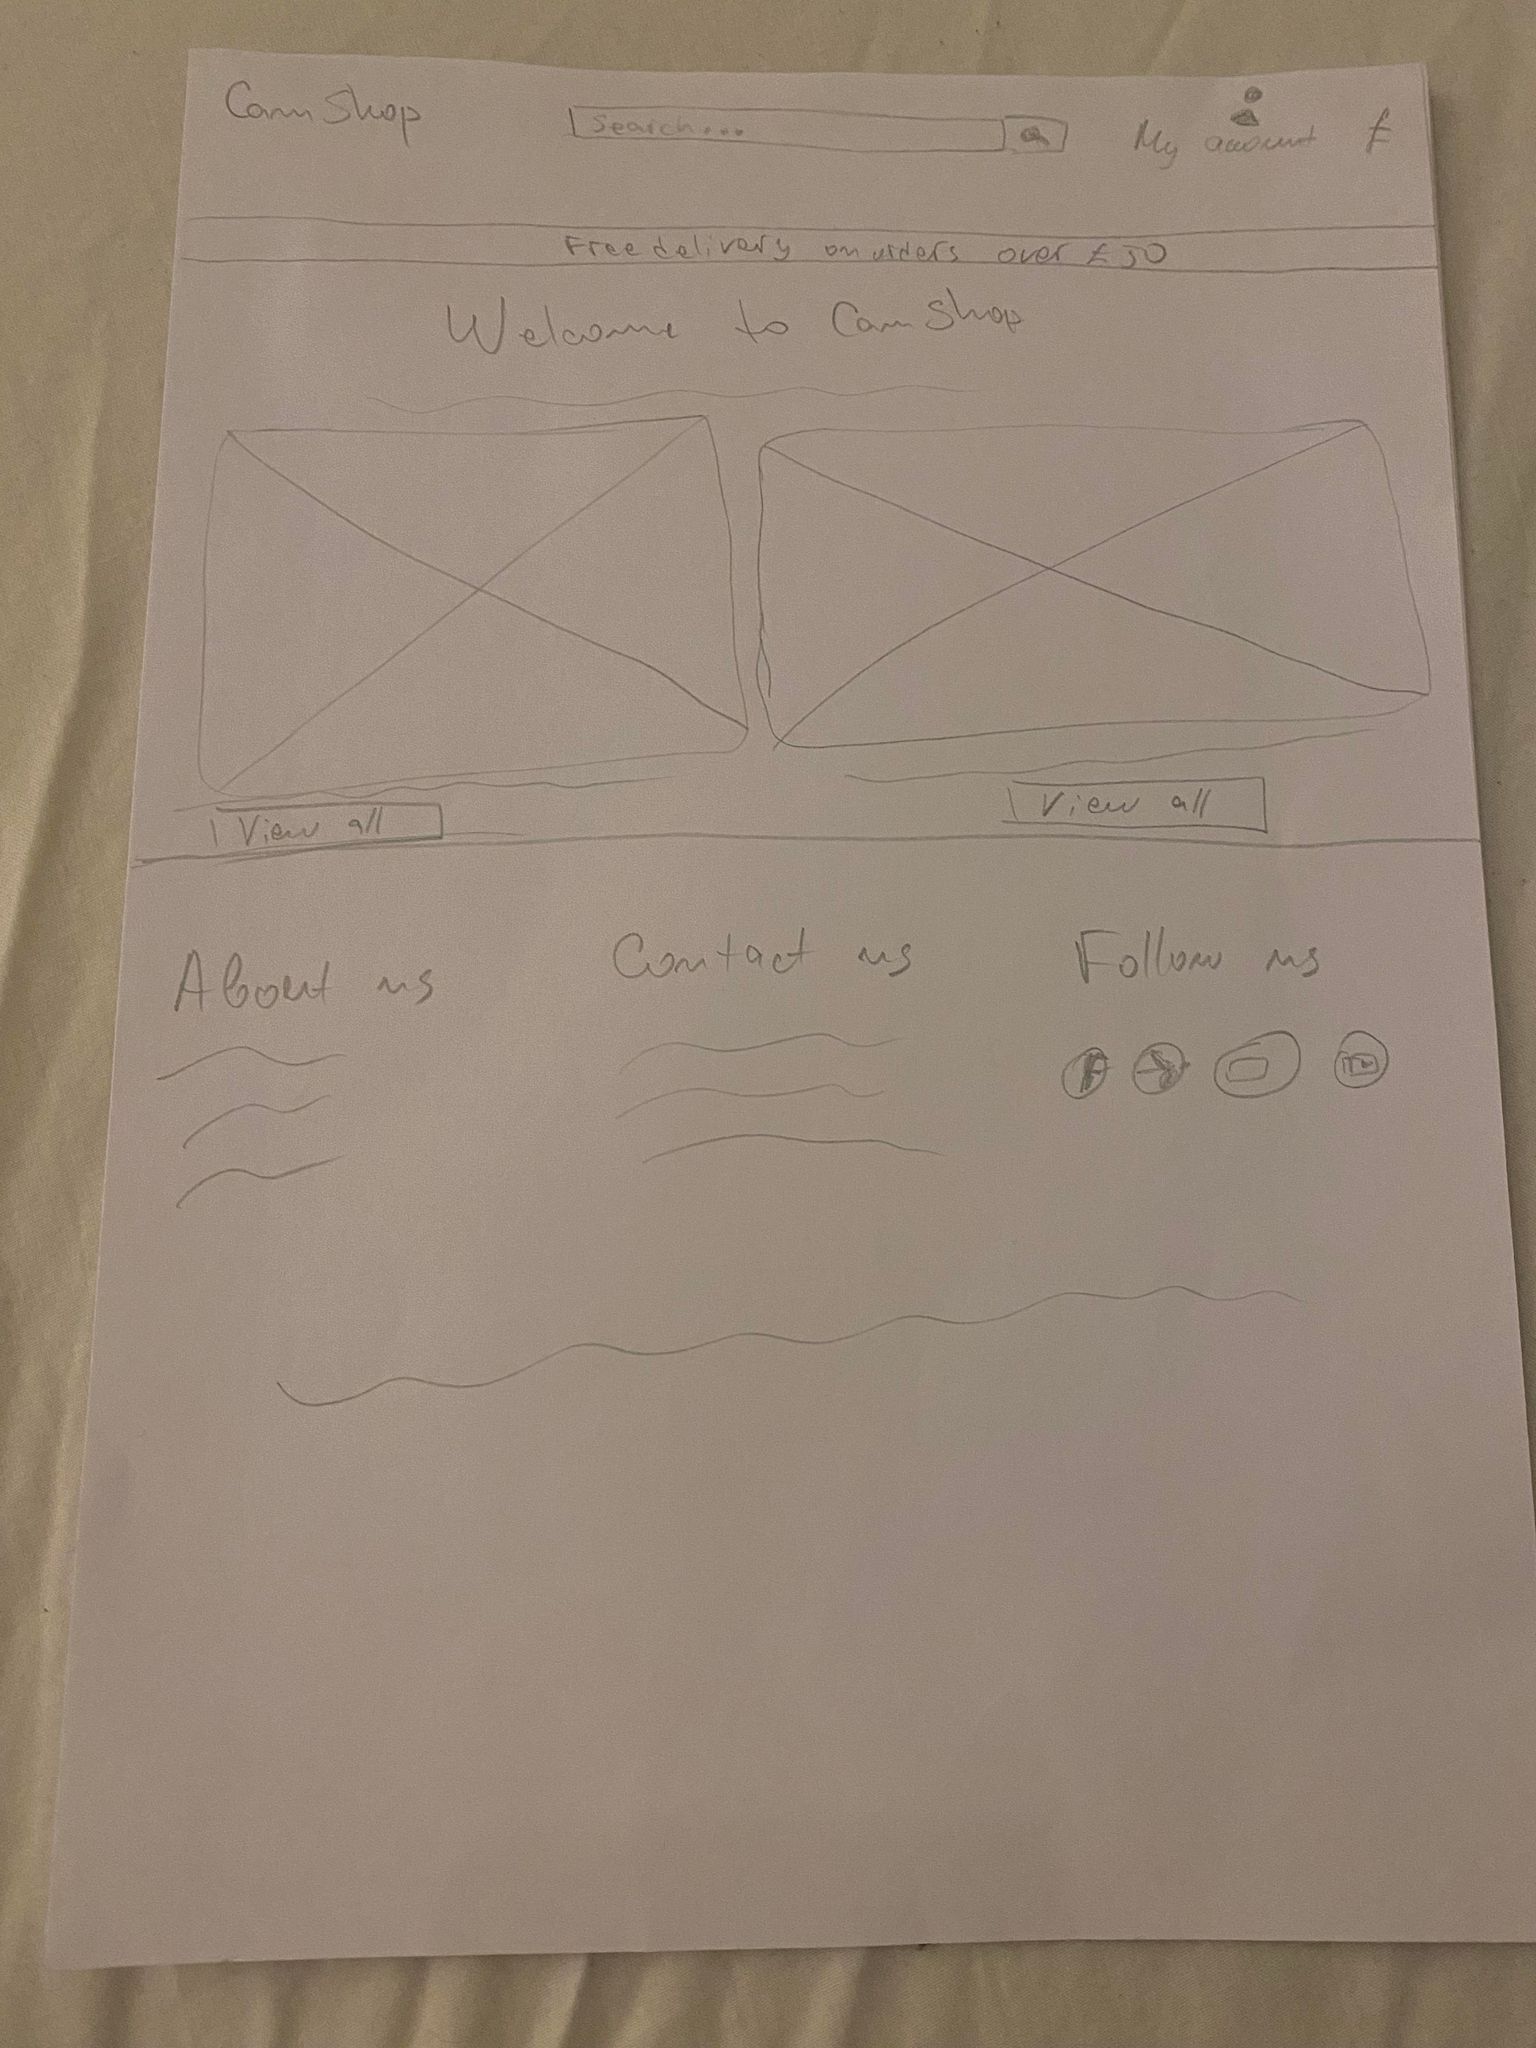 CamShop
Search...
My account £
Free delivery on orders over £50
Welcome to CamShop
View all
View all
About us
Contact us
Follow us
f